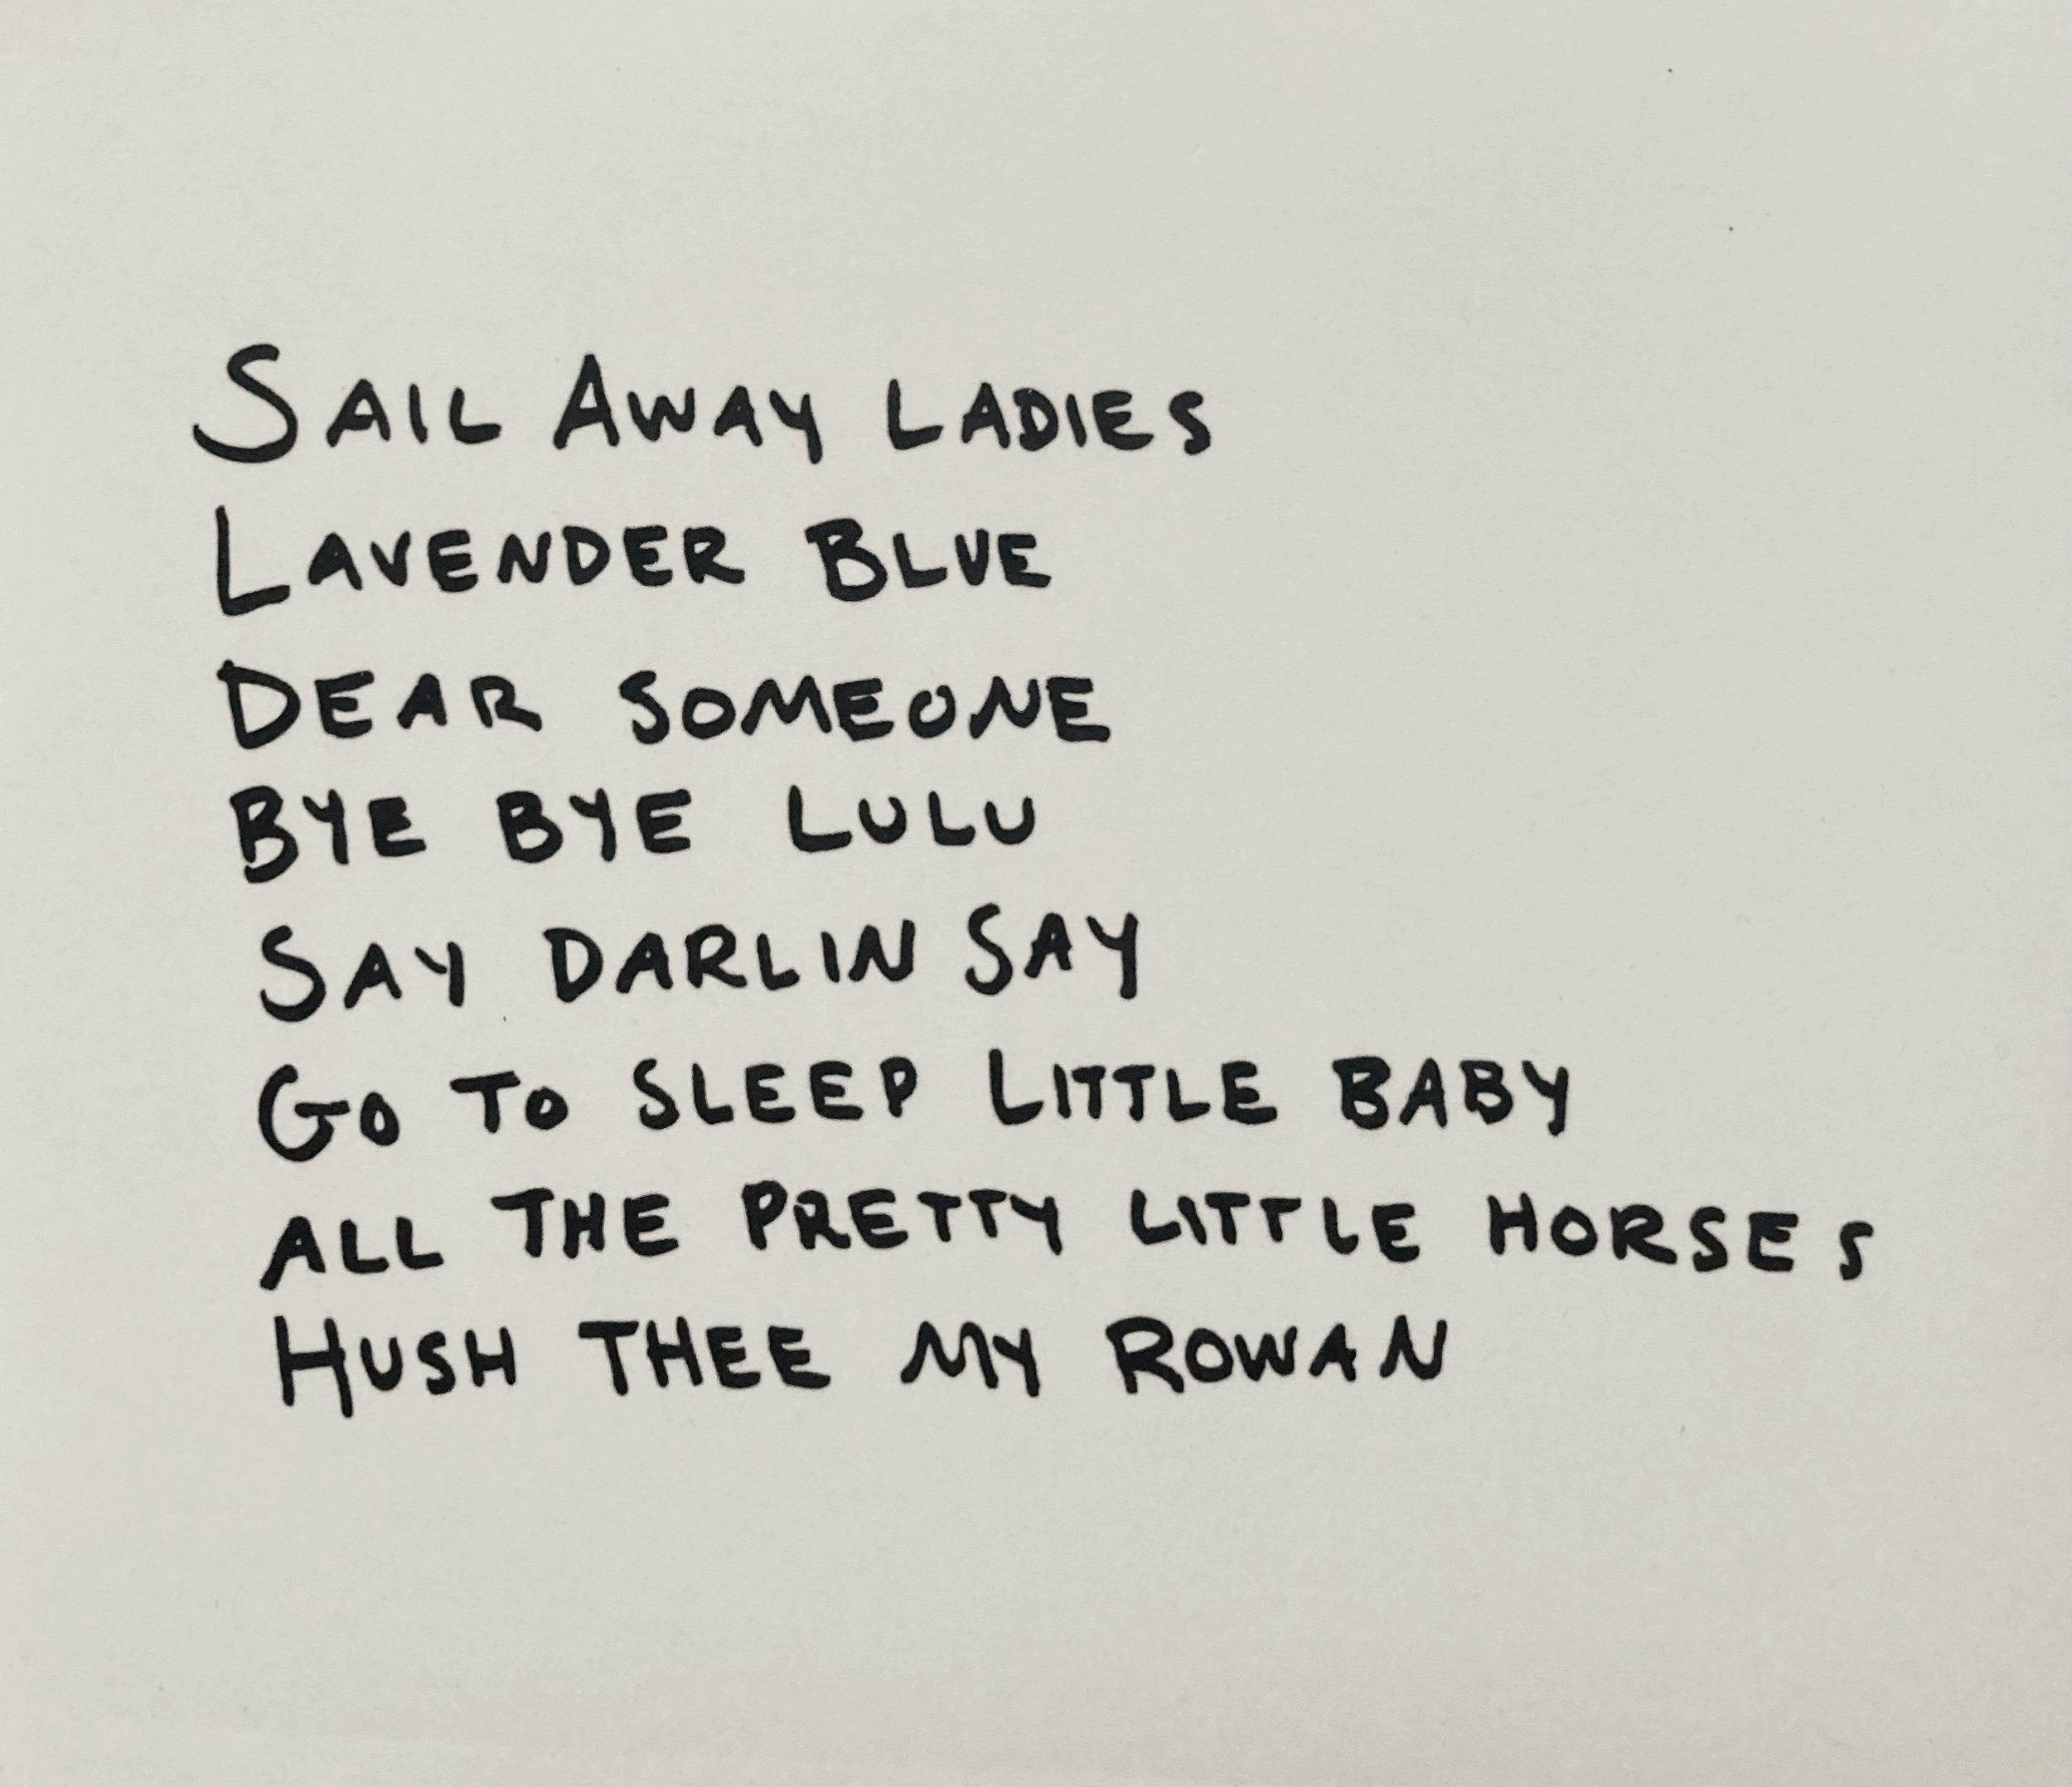 SAIL AWAY LADIES
LAVENDER BLUE
DEAR SOMEONE
BYE BYE LULU
SAY DARLIN SAY
GO TO SLEEP LITTLE BABY
ALL THE PRETTY LITTLE HORSES
HUSH THEE MY ROWAN